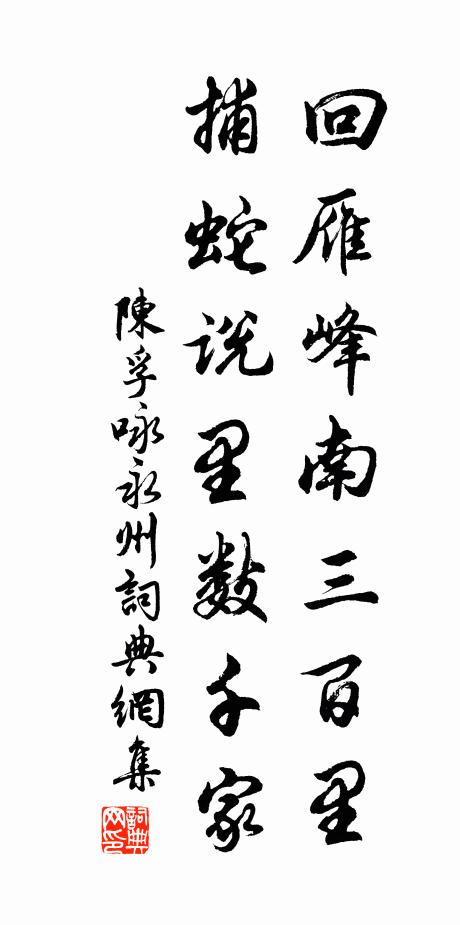 回雁峰南三百里
捕蛇说里数千家
陳孚咏永州詞典網集
詞典
网印